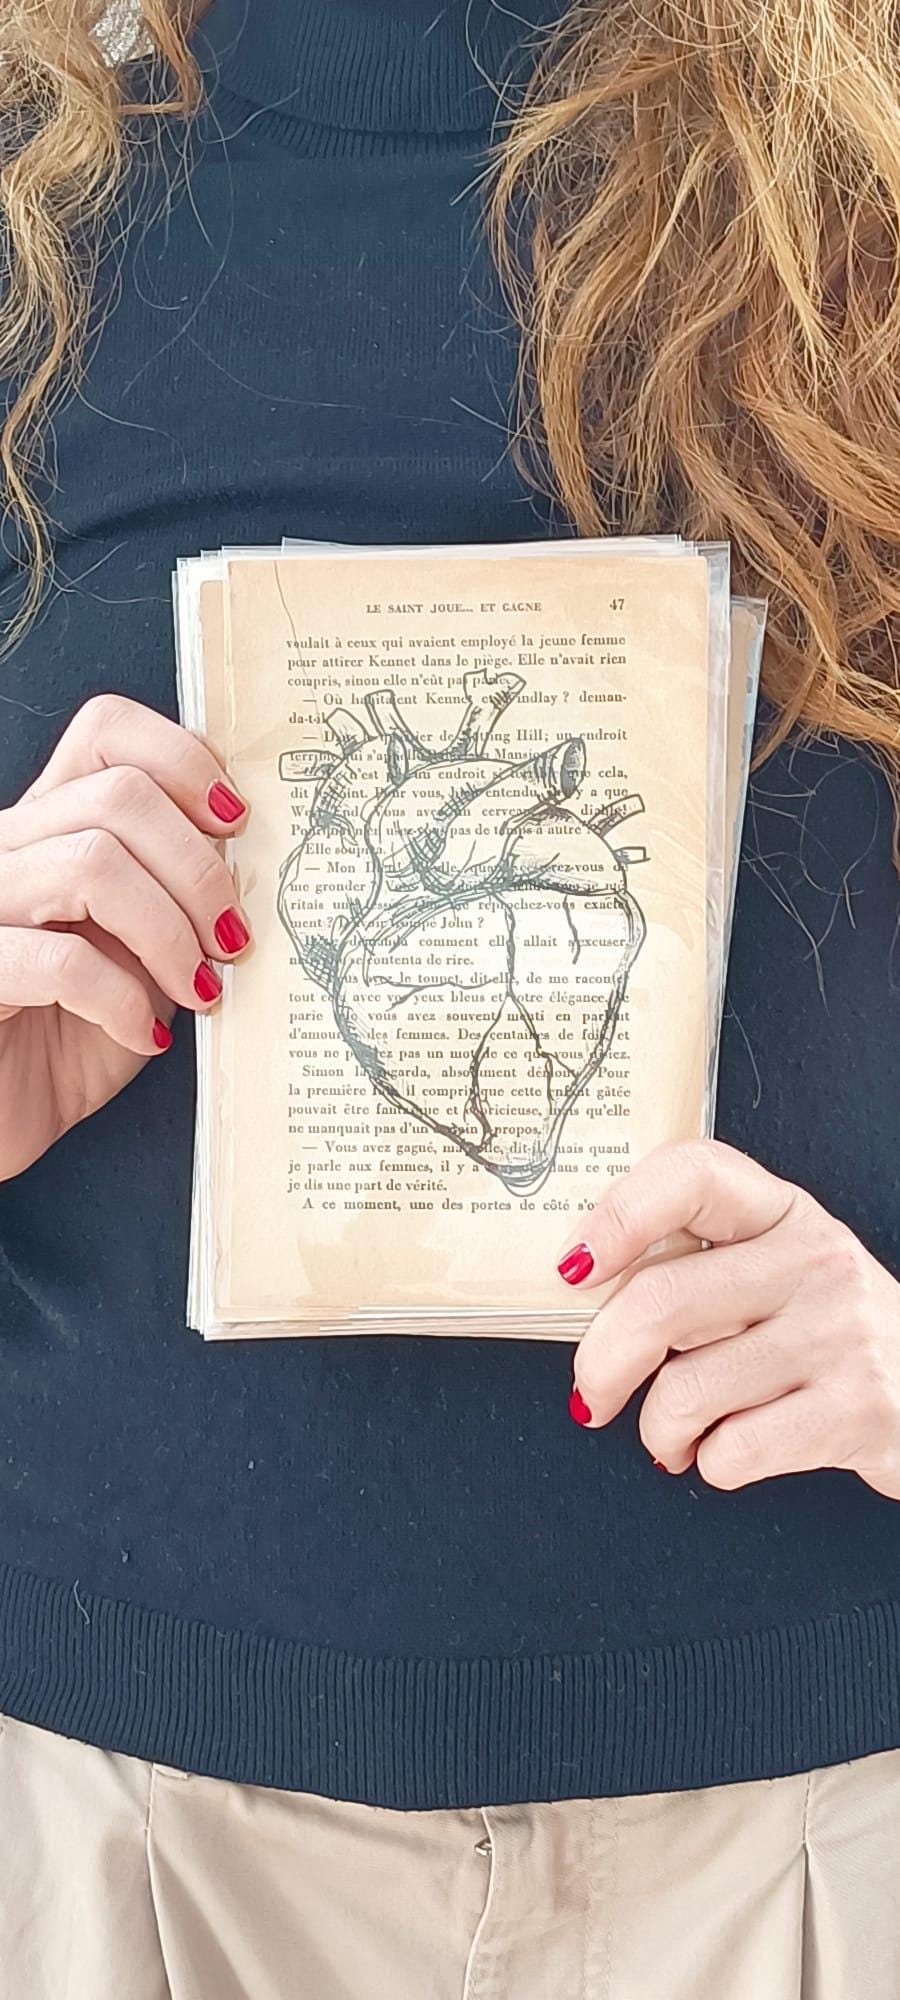 LE SAINT JOUE... ET GAGNE 47
voulait à ceux qui avaient employé la jeune femme
pour attirer Kennet dans le piège. Elle n'avait rien
compris, sinon elle n'eût pas parlé.
— Où habitaient Kennet et Windlay ? deman-
da-t-il.
— Dans le de Notting Hill; un endroit
terrible qui s'appelle Mansions.
— n'est pas un endroit si terrible que cela,
dit le Saint. Pour vous, entendu, il n'y a que
West End. Vous avez un cerveau, diable!
Pourquoi n'en usez-vous pas de temps à autre ?
Elle soupira.
— Mon Dieu, de
me gronder je mé-
ritais une Que me reprochez-vous exacte-
ment ? D'avoir trompé John ?
demanda comment elle allait s'excuser,
se contenta de rire.
— Vous avez le toupet, dit-elle, de me raconter
tout cela avec vos yeux bleus et votre élégance. Je
parie que vous avez souvent menti en parlant
d'amour à des femmes. Des centaines de fois, et
vous ne pensiez pas un mot de ce que vous disiez.
Simon la regarda, absolument démonté. Pour
la première fois il comprit que cette enfant gâtée
pouvait être fantasque et capricieuse, mais qu'elle
ne manquait pas d'un certain à-propos.
— Vous avez gagné, ma belle, dit-il, mais quand
je parle aux femmes, il y a dans ce que
je dis une part de vérité.
A ce moment, une des portes de côté